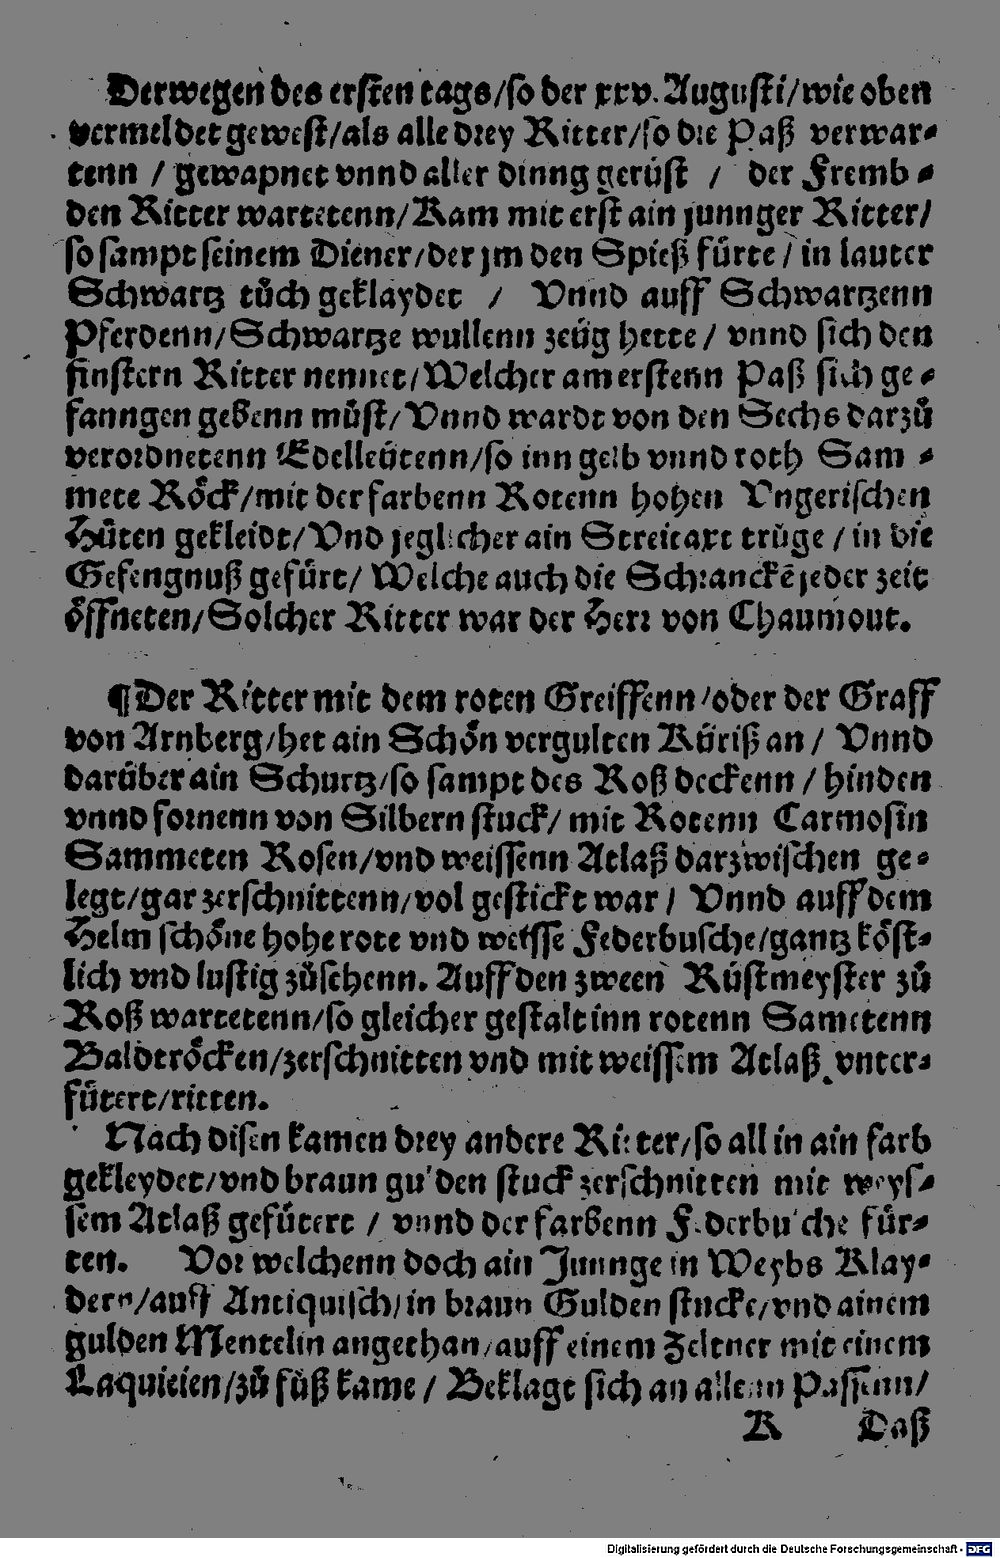 Derwegen des ersten tags/so der xxv. Augusti/wie oben
vermeldet gewest/als alle drey Ritter/so die Paß verwar-
tenn / gewapnet vnnd aller dinng gerüst / der Fremb-
den Ritter wartetenn/Kam mit erst ain junnger Ritter/
so sampt seinem Diener/der jm den Spieß fürte/in lauter
Schwartz tůch geklaydet / Vnnd auff Schwartzenn
Pferdenn/Schwartze wullenn zeüg hette / vnnd sich den
finstern Ritter nennet/Welcher am erstenn Paß sich ge-
fanngen gebenn můst/Vnnd wardt von den Sechs darzů
verordnetenn Edelleütenn/so inn gelb vnnd roth Sam-
mete Röck/mit der farbenn Rotenn hohen Vngerischen
Hüten gekleidt/Vnd jeglicher ain Streitaxt trůge / in die
Gefengnuß gefürt/ Welche auch die Schranckē jeder zeit
öffneten/Solcher Ritter war der Herr von Chaumout.
¶ Der Ritter mit dem roten Greiffenn/oder der Graff
von Arnberg/het ain Schön vergulten Küriß an / Vnnd
darüber ain Schurtz/so sampt des Roß deckenn / hinden
vnnd fornenn von Silbern stuck/ mit Rotenn Carmosin
Sammeten Rosen/vnd weissenn Atlaß darzwischen ge-
legt/gar zerschnittenn/vol gestickt war / Vnnd auff dem
Helm schöne hohe rote vnd weisse Federbusche/gantz köst-
lich vnd lustig zůsehenn. Auff den zween Rüstmeyster zů
Roß wartetenn/so gleicher gestalt inn rotenn Sametenn
Baldtröcken/zerschnitten vnd mit weissem Atlaß vnter-
fütert/ritten.
Nach disen kamen drey andere Ritter/so all in ain farb
gekleydet/vnd braun gulden stuck zerschnitten mit weys-
sem Atlaß gefütert / vnnd der farbenn Federbusche für-
ten. Vor welchenn doch ain Junnge in Weybs Klay-
dern/auff Antiquisch/in braun Gulden stucke/vnd ainem
gulden Mentelin angethan/auff einem Zeltner mit einem
Laquieien/zů fůß kame / Beklagt sich an allenn Passenn/
K Daß
Digitalisierung gefördert durch die Deutsche Forschungsgemeinschaft - DFG